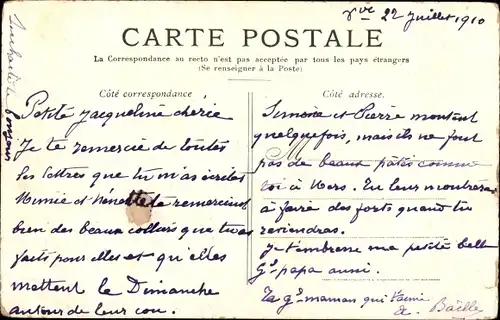 22 juillet 1910
CARTE POSTALE
La Correspondance au recto n'est pas acceptée par tous les pays étrangers
(Se renseigner à la Poste)
Côté correspondance
Petite Jacqueline chérie
Je te remercie de toutes
les lettres que tu m'as écrites
Mimie et Nénette te remercient
bien des beaux colliers que tu as
faits pour elles et qu'elles
mettent le Dimanche
autour de leur cou.
Côté adresse.
Simone et Pierre montent
quelquefois, mais ils ne font
pas de beaux patés comme
toi à Mers. Tu leur montreras
à faire des forts quand tu
reviendras.
Je t'embrasse ma petite belle
Gd papa aussi.
Ta gd maman qui t'aime
bonjour